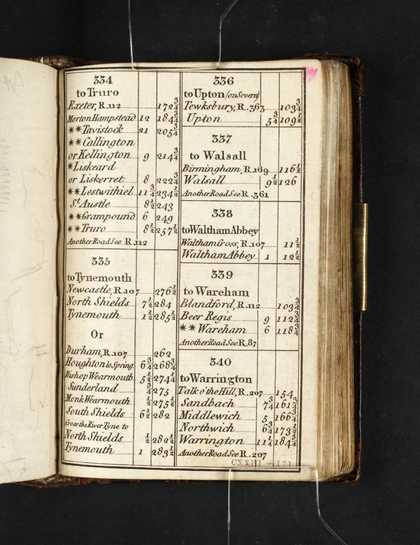 334
to Truro
Exeter, R. 112 172¾
Morton Hampstead 12 184¾
**Tavistock 21 205¾
**Callington
or Kellington 9 214¾
*Liskeard
or Liskerret 8 222¾
**Lestwithiel 11¾ 234½
St. Austle 8½ 243
**Grampound 6 249
**Truro 8½ 257½
Another Road See R. 112
335
to Tynemouth
Newcastle, R. 107 276½
North Shields 7½ 284
Tynemouth 1½ 285½
Or
Durham, R. 107 262
Houghton le Spring 6¾ 268¾
Bishop Wearmouth
Sunderland 275
Monk Wearmouth
South Shields 6½ 282
Cross the River Tyne to
North Shields
Tynemouth 1
336
to Upton (on Severn)
Tewksbury, R. 363 103¾
Upton 5¾ 109½
337
to Walsall
Birmingham, R. 169 116½
Walsall 9½ 126
Another Road See R. 361
338
to Waltham Abbey
Waltham Cross, R. 107 11½
Waltham Abbey 1 12½
339
to Wareham
Blandford, R. 112
Beer Regis 9
**Wareham 6
Another Road See R. 87
340
to Warrington
Talk o' the Hill, R. 207 154
Sandbach
Middlewich 5
Northwich
Warrington
Another Road See R. 207